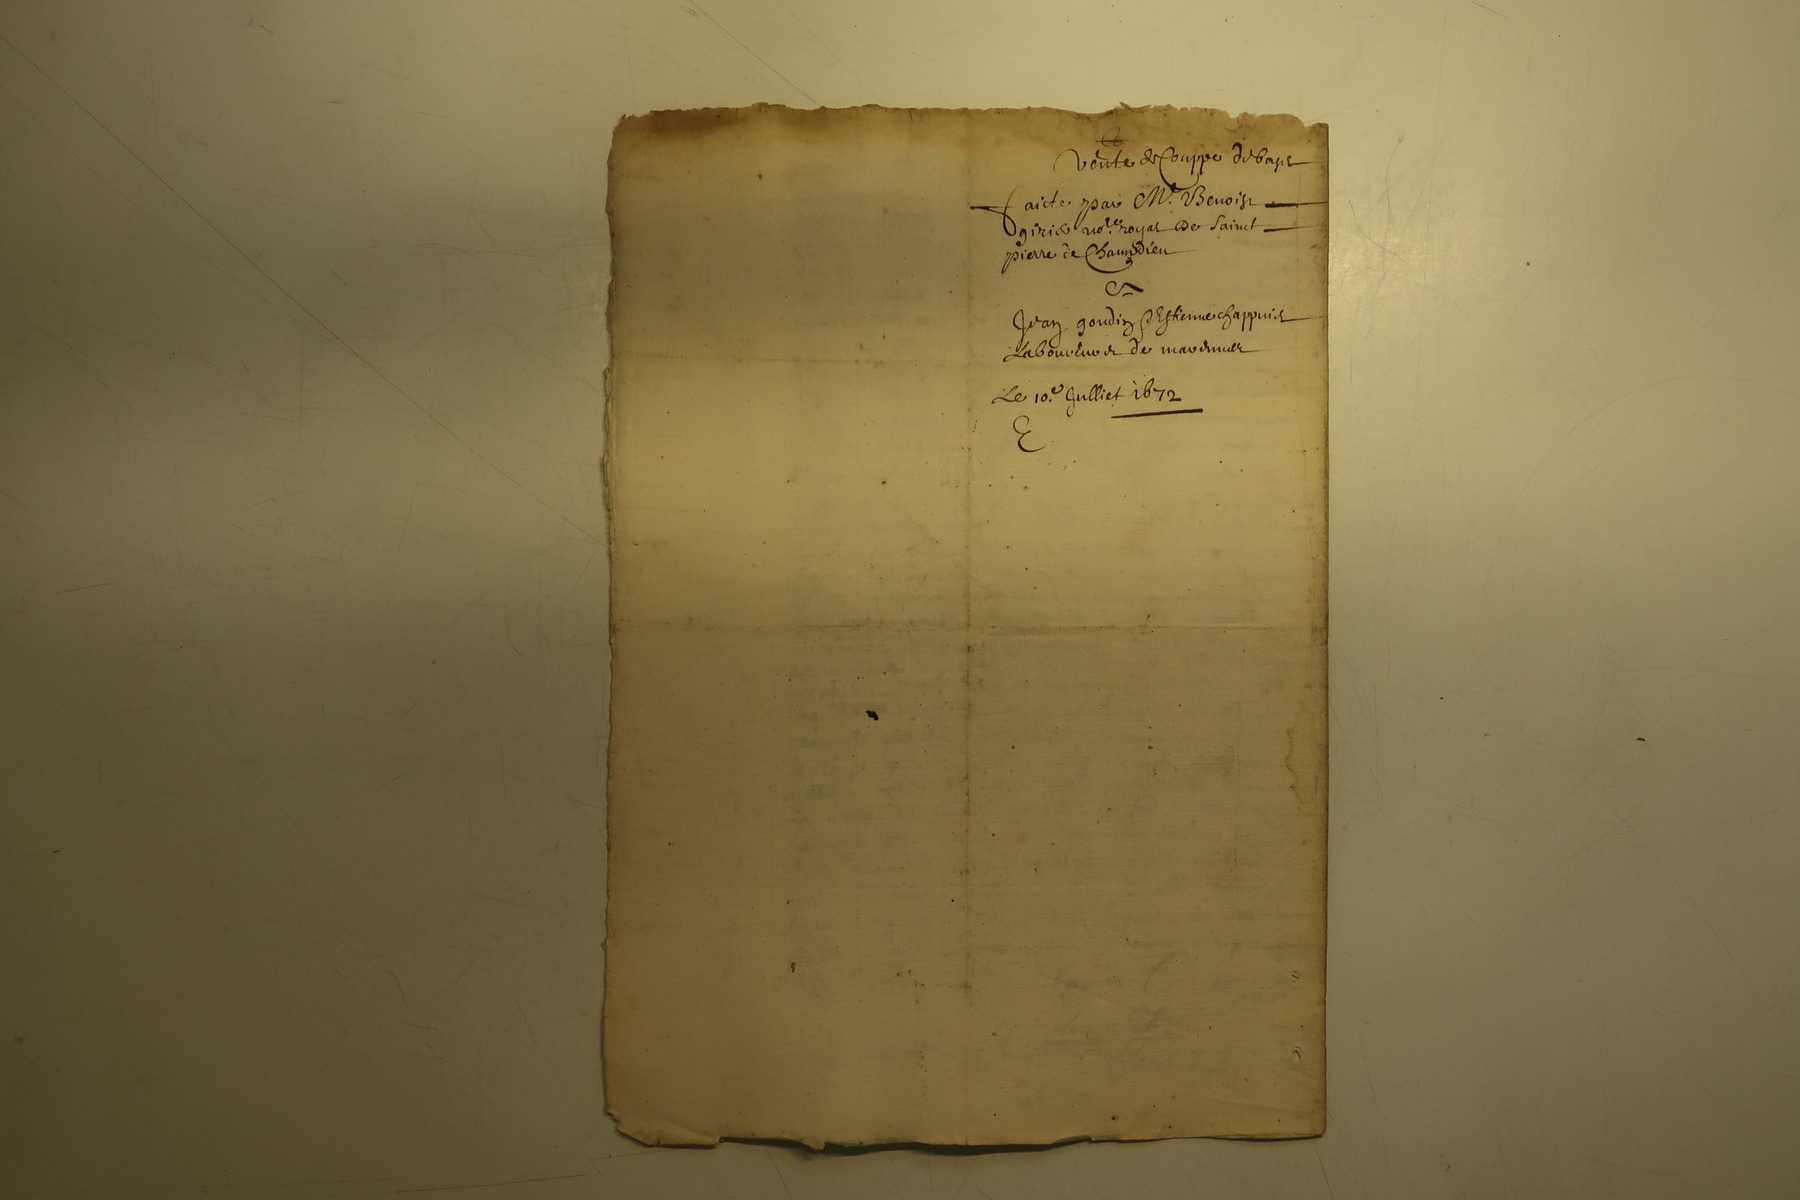 Vente de Couppe de bois
faicte par Me Benoist
girie not.re royal de Sainct
pierre de Chandieu
A
Jean goudin & Estienne chappuis
Laboureurs de marennes
Le 10.e Julliet 1672